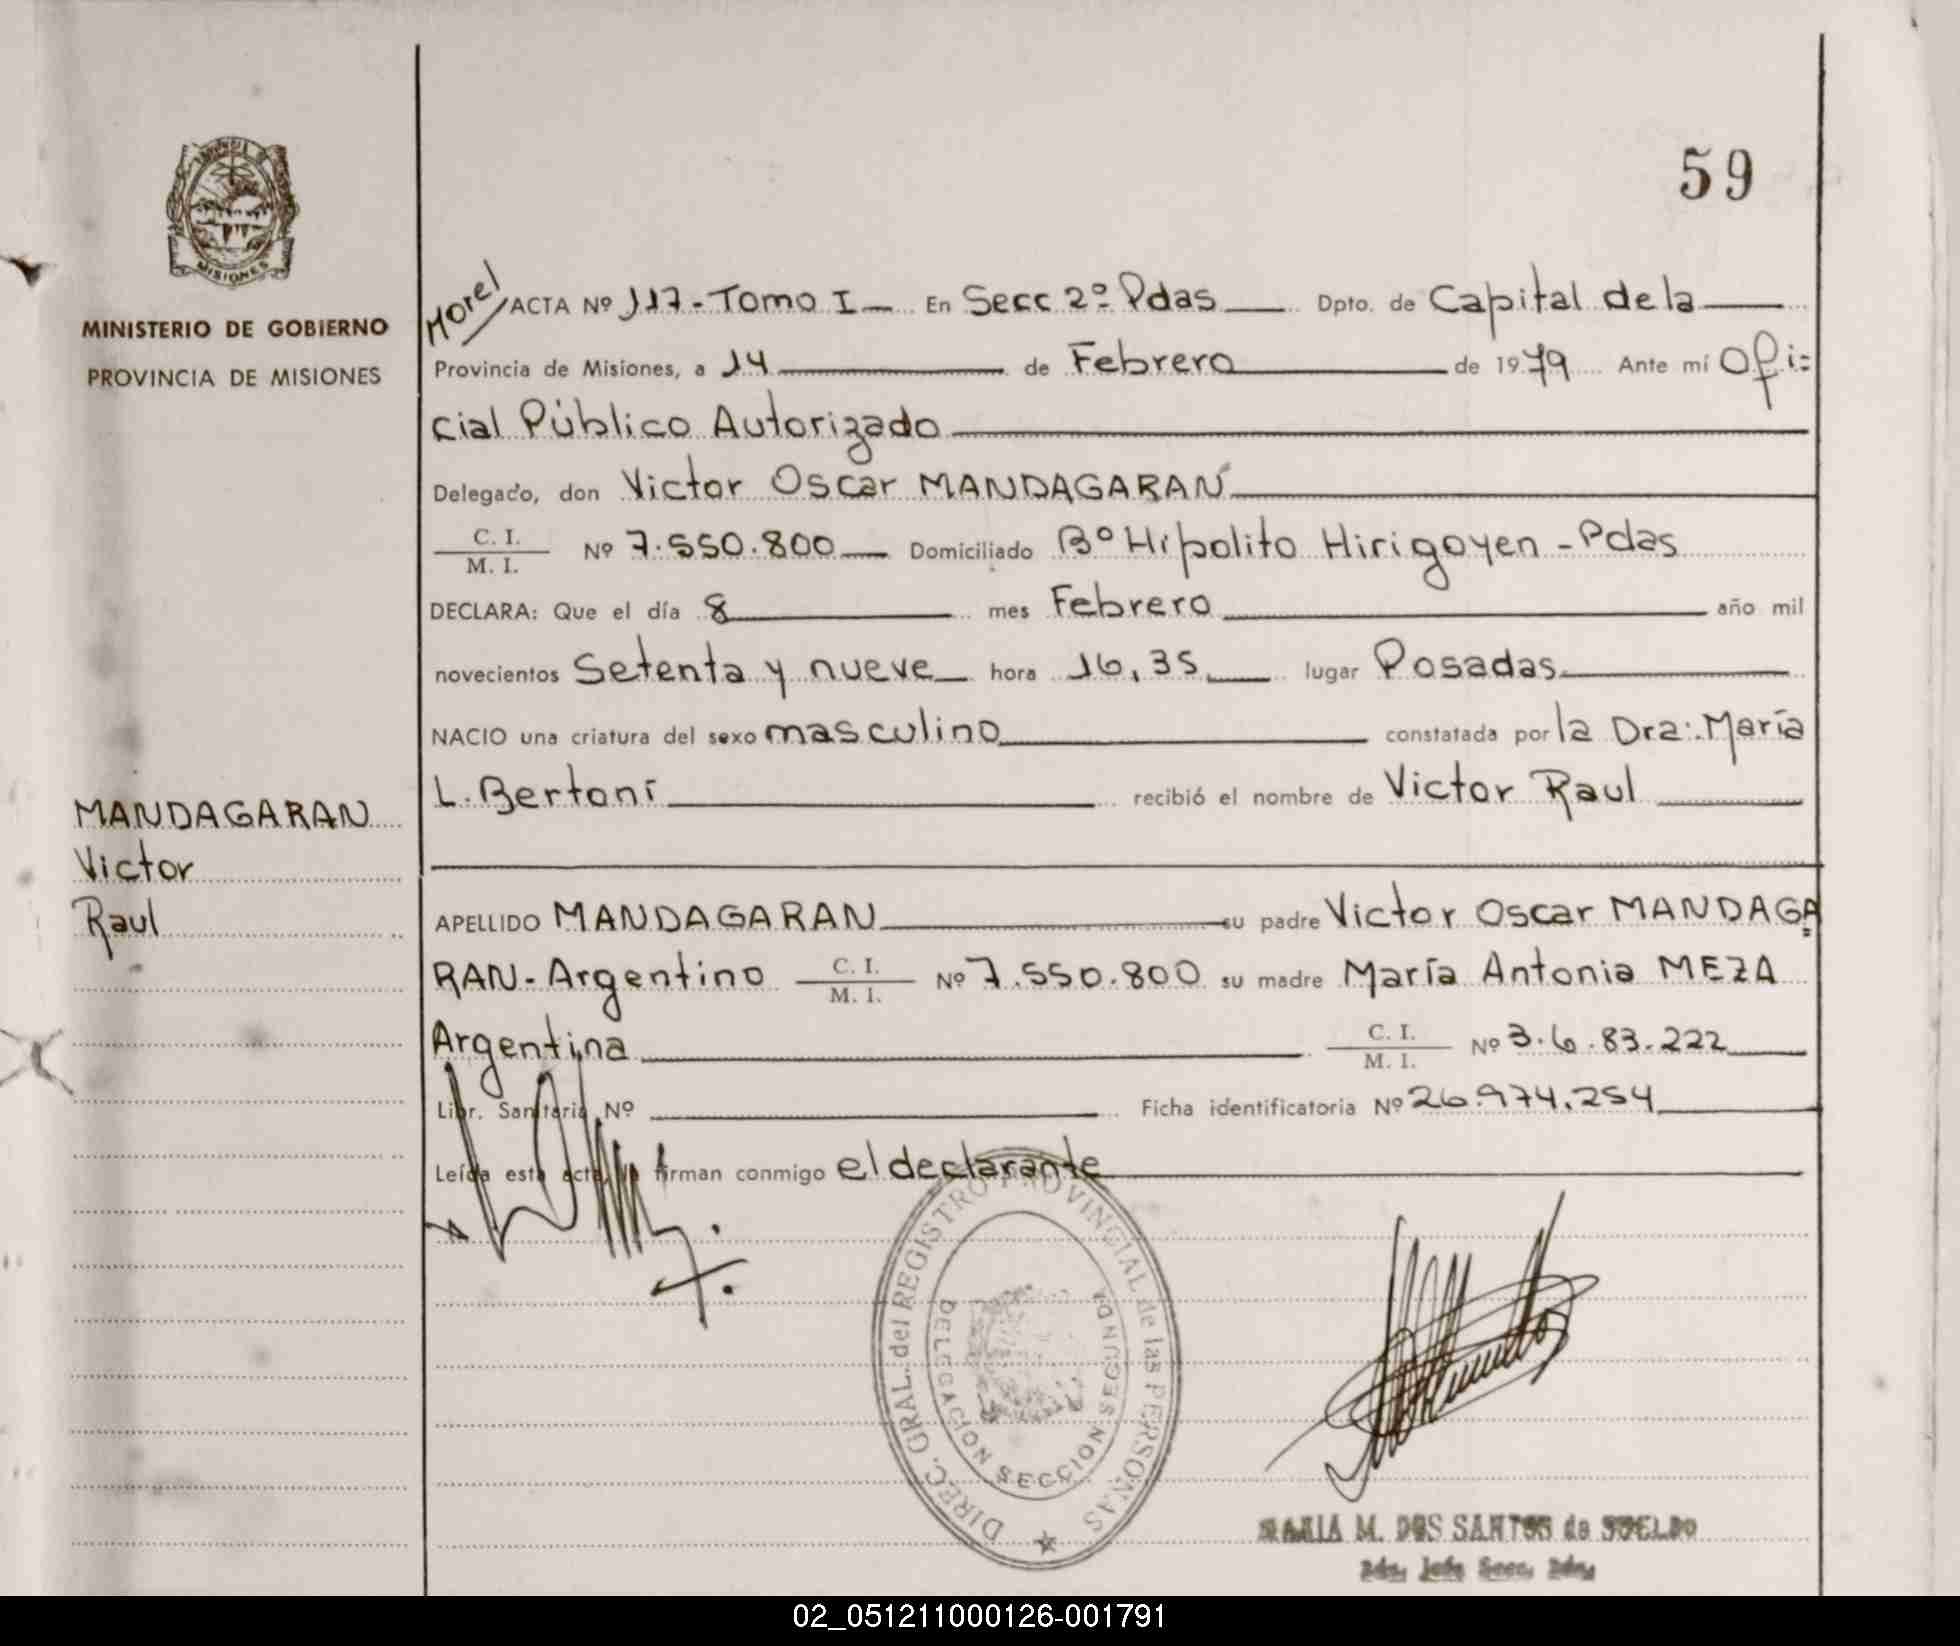 59
MINISTERIO DE GOBIERNO
PROVINCIA DE MISIONES
MANDAGARAN
Victor
Raul
Morel
ACTA Nº 117-Tomo I En Secc 2º Pdas Dpto. de Capital de la
Provincia de Misiones, a 14 de Febrero de 1979 Ante mí Ofi=
cial Público Autorizado
Delegado, don Victor Oscar MANDAGARAN
C. I.
M. I. Nº 7.550.800 Domiciliado Bº Hipolito Hirigoyen - Pdas
DECLARA: Que el día 8 mes Febrero año mil
novecientos Setenta y nueve hora 16,35 lugar Posadas
NACIO una criatura del sexo masculino constatada por la Dra: María
L. Bertoni recibió el nombre de Victor Raul
APELLIDO MANDAGARAN su padre Victor Oscar MANDAGA=
RAN- Argentino C. I. M. I. Nº 7.550.800 su madre María Antonia MEZA
Argentina C. I. M. I. Nº 3.6.83.222
Libr. Sanitaria Nº Ficha identificatoria Nº 26.974.254
Leída esta acta, la firman conmigo el declarante
DIREC. GRAL. del REGISTRO PROVINCIAL de las PERSONAS
DELEGACION SECCION SEGUNDA
MARIA M. DOS SANTOS de SUELDO
02_051211000126-001791